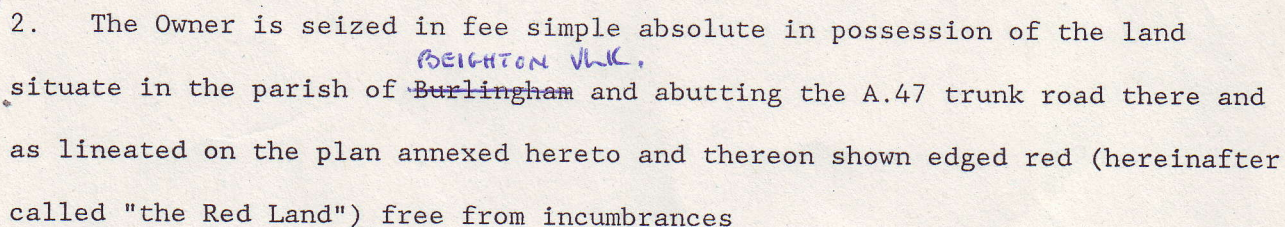 2. The Owner is seized in fee simple absolute in possession of the land
BEIGHTON
situate in the parish of Burlingham and abutting the A.47 trunk road there and
as lineated on the plan annexed hereto and thereon shown edged red (hereinafter
called "the Red Land") free from incumbrances